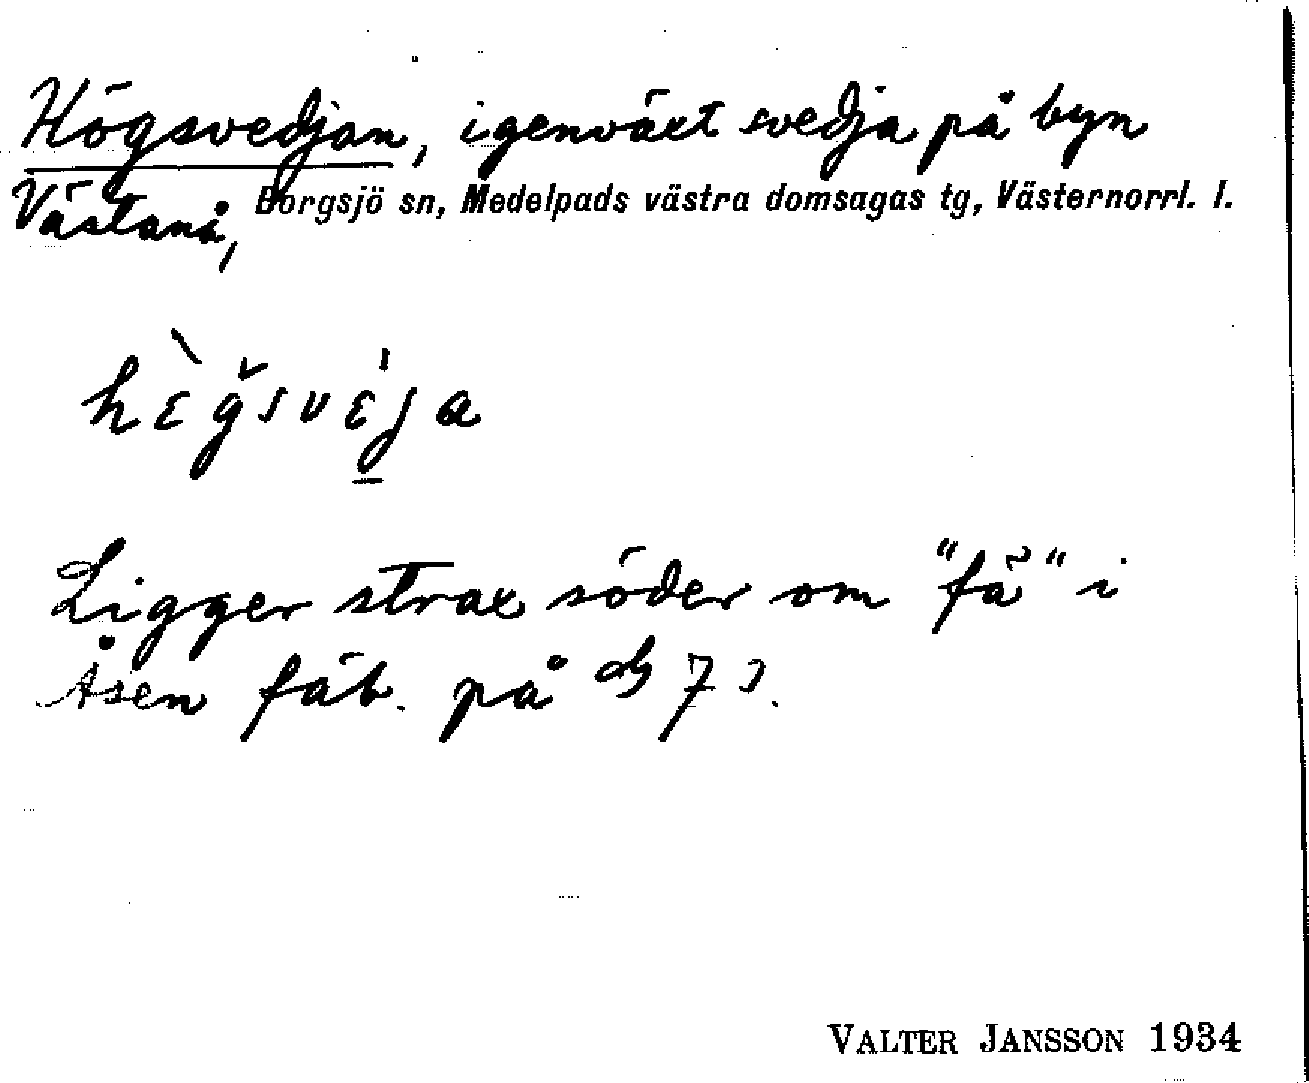 Högsvedjan, igenväxt svedja på byn
Västanå, Borgsjö sn, Medelpads västra domsagas tg, Västernorrl. l.
Ligger strax söder om "fä" i
Åsen fäb. på
VALTER JANSSON 1934